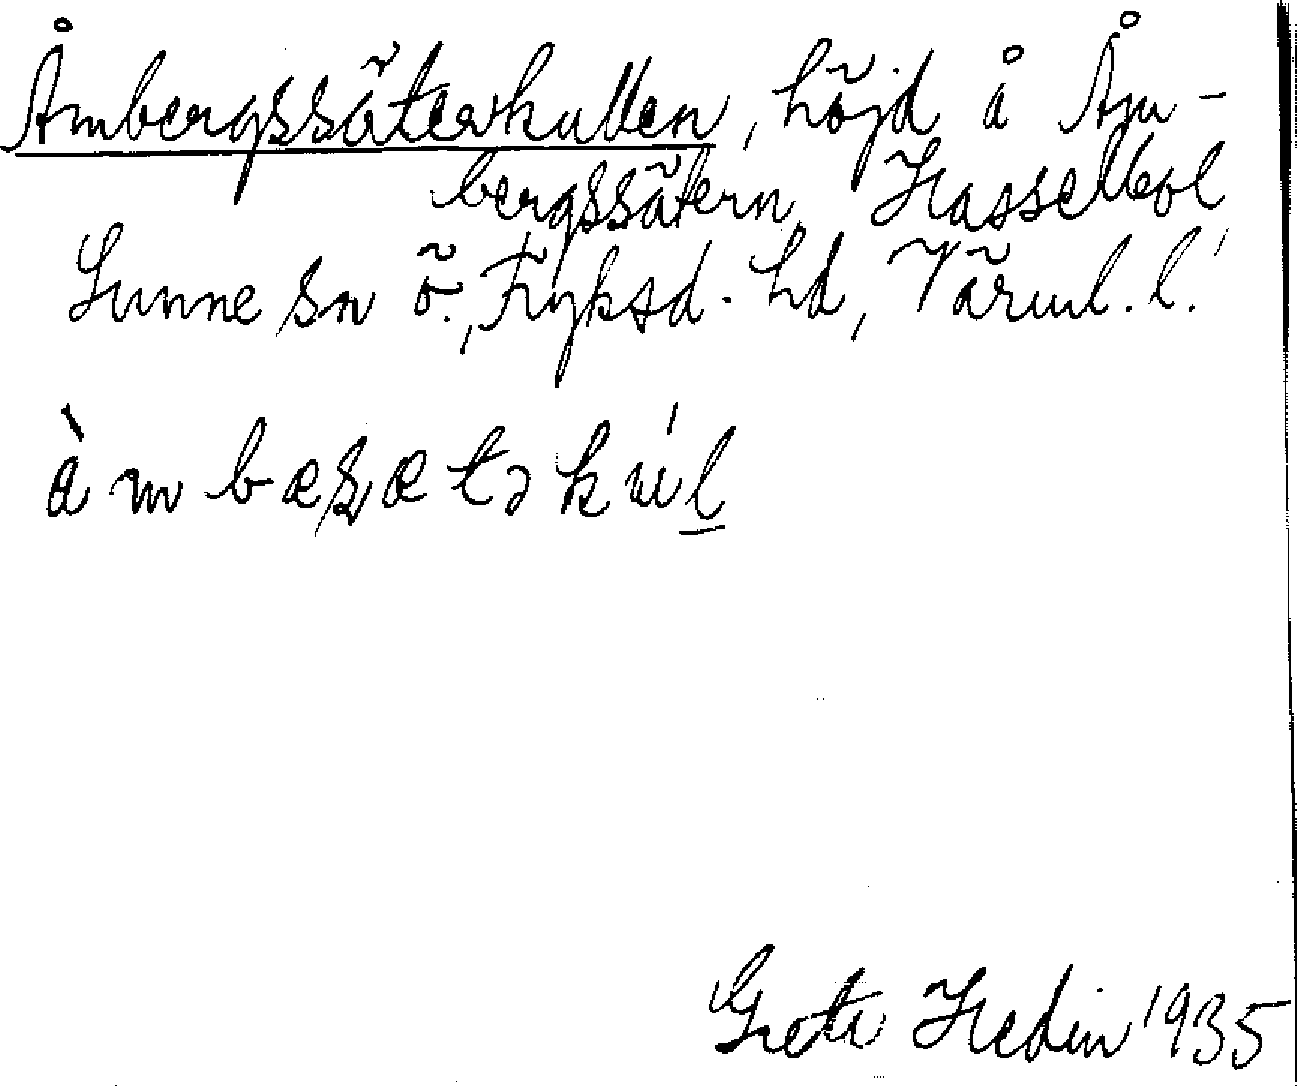 Åmbergssäterkullen, höjd å Åm-
bergssätern, Hasselbol
Sunne sn ö., Fryksd. hd, Värml. l.
àmbæʂætəkúl
Greta Hedin 1935